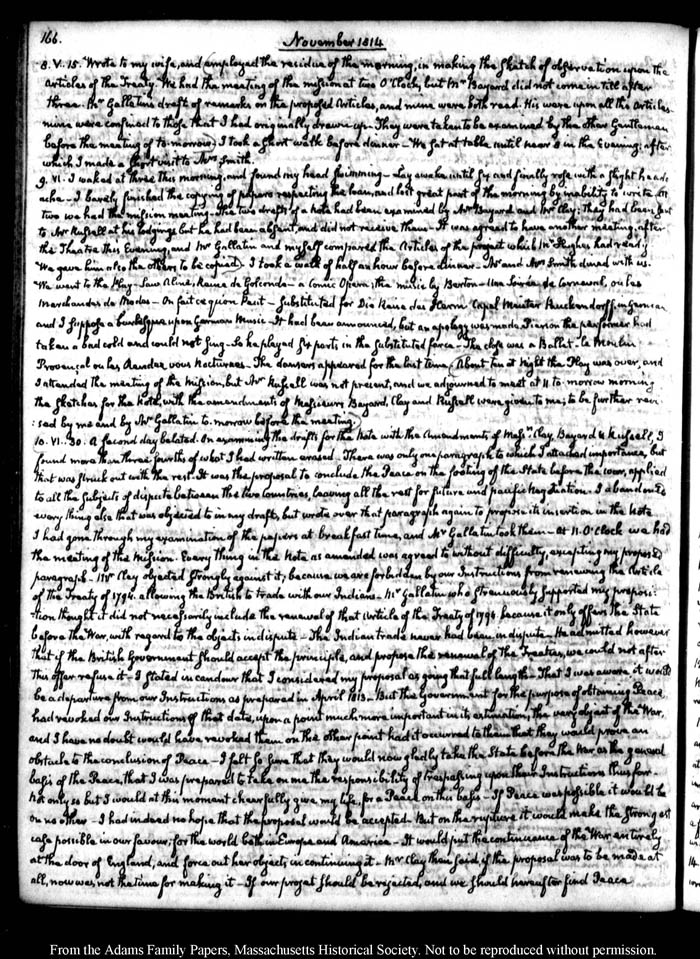 166.
November 1814
8. V. 15. Wrote to my wife, and employed the residue of the morning, in making the sketch of observations upon the
Articles of the Treaty. We had the meeting of the mission at two O'Clock, but Mr Bayard did not come in till after
three. Mr Gallatin's draft of remarks on the proposed Articles, and mine were both read. His were upon all the Articles
mine were confined to those that I had originally drawn up. They were taken to be examined by the other Gentlemen
before the meeting of to-morrow. I took a short walk before dinner. We sat at table until near 8 in the Evening; after
which I made a short visit to Mrs Smith.
9. VI. I waked at three this morning, and found my head swimming. Lay awake until six and finally rose with a slight head-
ache. I barely finished the copying of papers respecting the loan, and lost great part of the morning by inability to write. At
two we had the mission meeting. The two drafts of a note had been examined by Mr Bayard and Mr Clay; They had been sent
to Mr Russell at his lodgings but he had been absent, and did not receive them. It was agreed to have another meeting, after
the Theatre this Evening, and Mr Gallatin and myself compared the Articles of the project which Mr Hughes had ready
We gave him also the others to be copied. I took a walk of half an hour before dinner. Mr and Mrs Smith dined with us.
We went to the Play. Saw Aline, Reine de Golconde - a Comic Opera; the music by Berton - Une Soirée de Carnaval, ou les
Marchandes de Modes - On fait ce qu'on Peut - Substituted for Die Reine des
and I suppose a burlesque upon German Music. It had been announced, but an apology was made, Pierson the performer had
taken a bad cold and could not sing. So he played six parts, in the substituted farce. The close was a Ballet. Le Moulin
Provençal ou les Rendez vous Nocturnes. The dancers appeared for the last time. About ten at night the Play was over, and
I attended the meeting of the Mission, but Mr Russell was not present, and we adjourned to meet at 11 to-morrow morning
the sketches for the Note, with the amendments of Messieurs Bayard, Clay and Russell were given to me; to be further revi-
:sed by me and by Mr Gallatin to-morrow before the meeting.
10. VI. 30. A second day belated. On examining the drafts for the Note with the Amendments of Messrs Clay, Bayard & Russell, I
found more than three fourths of what I had written erased. There was only one paragraph to which I attached importance, but
that was struck out with the rest. It was the proposal to conclude the Peace on the footing of the State before the war, applied
to all the subjects of dispute between the two Countries, leaving all the rest for future and pacific negotiation. I abandoned
every thing else that was objected to in my draft, but wrote over that paragraph again to propose its insertion in the Note
I had gone through my examination of the papers at breakfast time, and Mr Gallatin took them. At 11. O'Clock we had
the meeting of the Mission. Every thing in the Note as amended was agreed to without difficulty, excepting my proposed
paragraph. Mr Clay objected strongly against it; because we are forbidden by our Instructions from renewing the Article
of the Treaty of 1794. allowing the British to trade with our Indians. Mr Gallatin who strenuously supported my proposi-
tion thought it did not necessarily include the renewal of that Article of the Treaty of 1794 because it only offers the State
before the War, with regard to the objects in dispute. The Indian trade never had been in dispute. He admitted however
that if the British Government should accept the principle, and propose the renewal of the Treaties, we could not after
this offer refuse it. I stated in candour that I considered my proposal as going that full length. That I was aware it would
be a departure from our Instructions as prepared in April 1813. But the Government for the purpose of obtaining Peace,
had revoked our Instructions of that date, upon a point much more important in its estimation, the very object of the War,
and I have no doubt would have revoked them on the other point had it occurred to them that they would prove an
obstacle to the conclusion of Peace. I felt so sure that they would now gladly take the State before the War as the general
basis of the Peace, that I was prepared to take on me the responsibility of trespassing upon their Instructions thus far.
Not only so but I would at this moment chearfully give my life, for a Peace on this basis. If Peace was possible it would be
on no other. I had indeed no hope that the proposal would be accepted. But on the rupture it would make the strongest
case possible in our favour; for the world both in Europe and America. It would put the continuance of the War entirely
at the door of England, and force out her objects in continuing it. Mr Clay then said, if the proposal was to be made at
all, now was not the time for making it. If our projet should be rejected, and we should hereafter find Peace
From the Adams Family Papers, Massachusetts Historical Society. Not to be reproduced without permission.